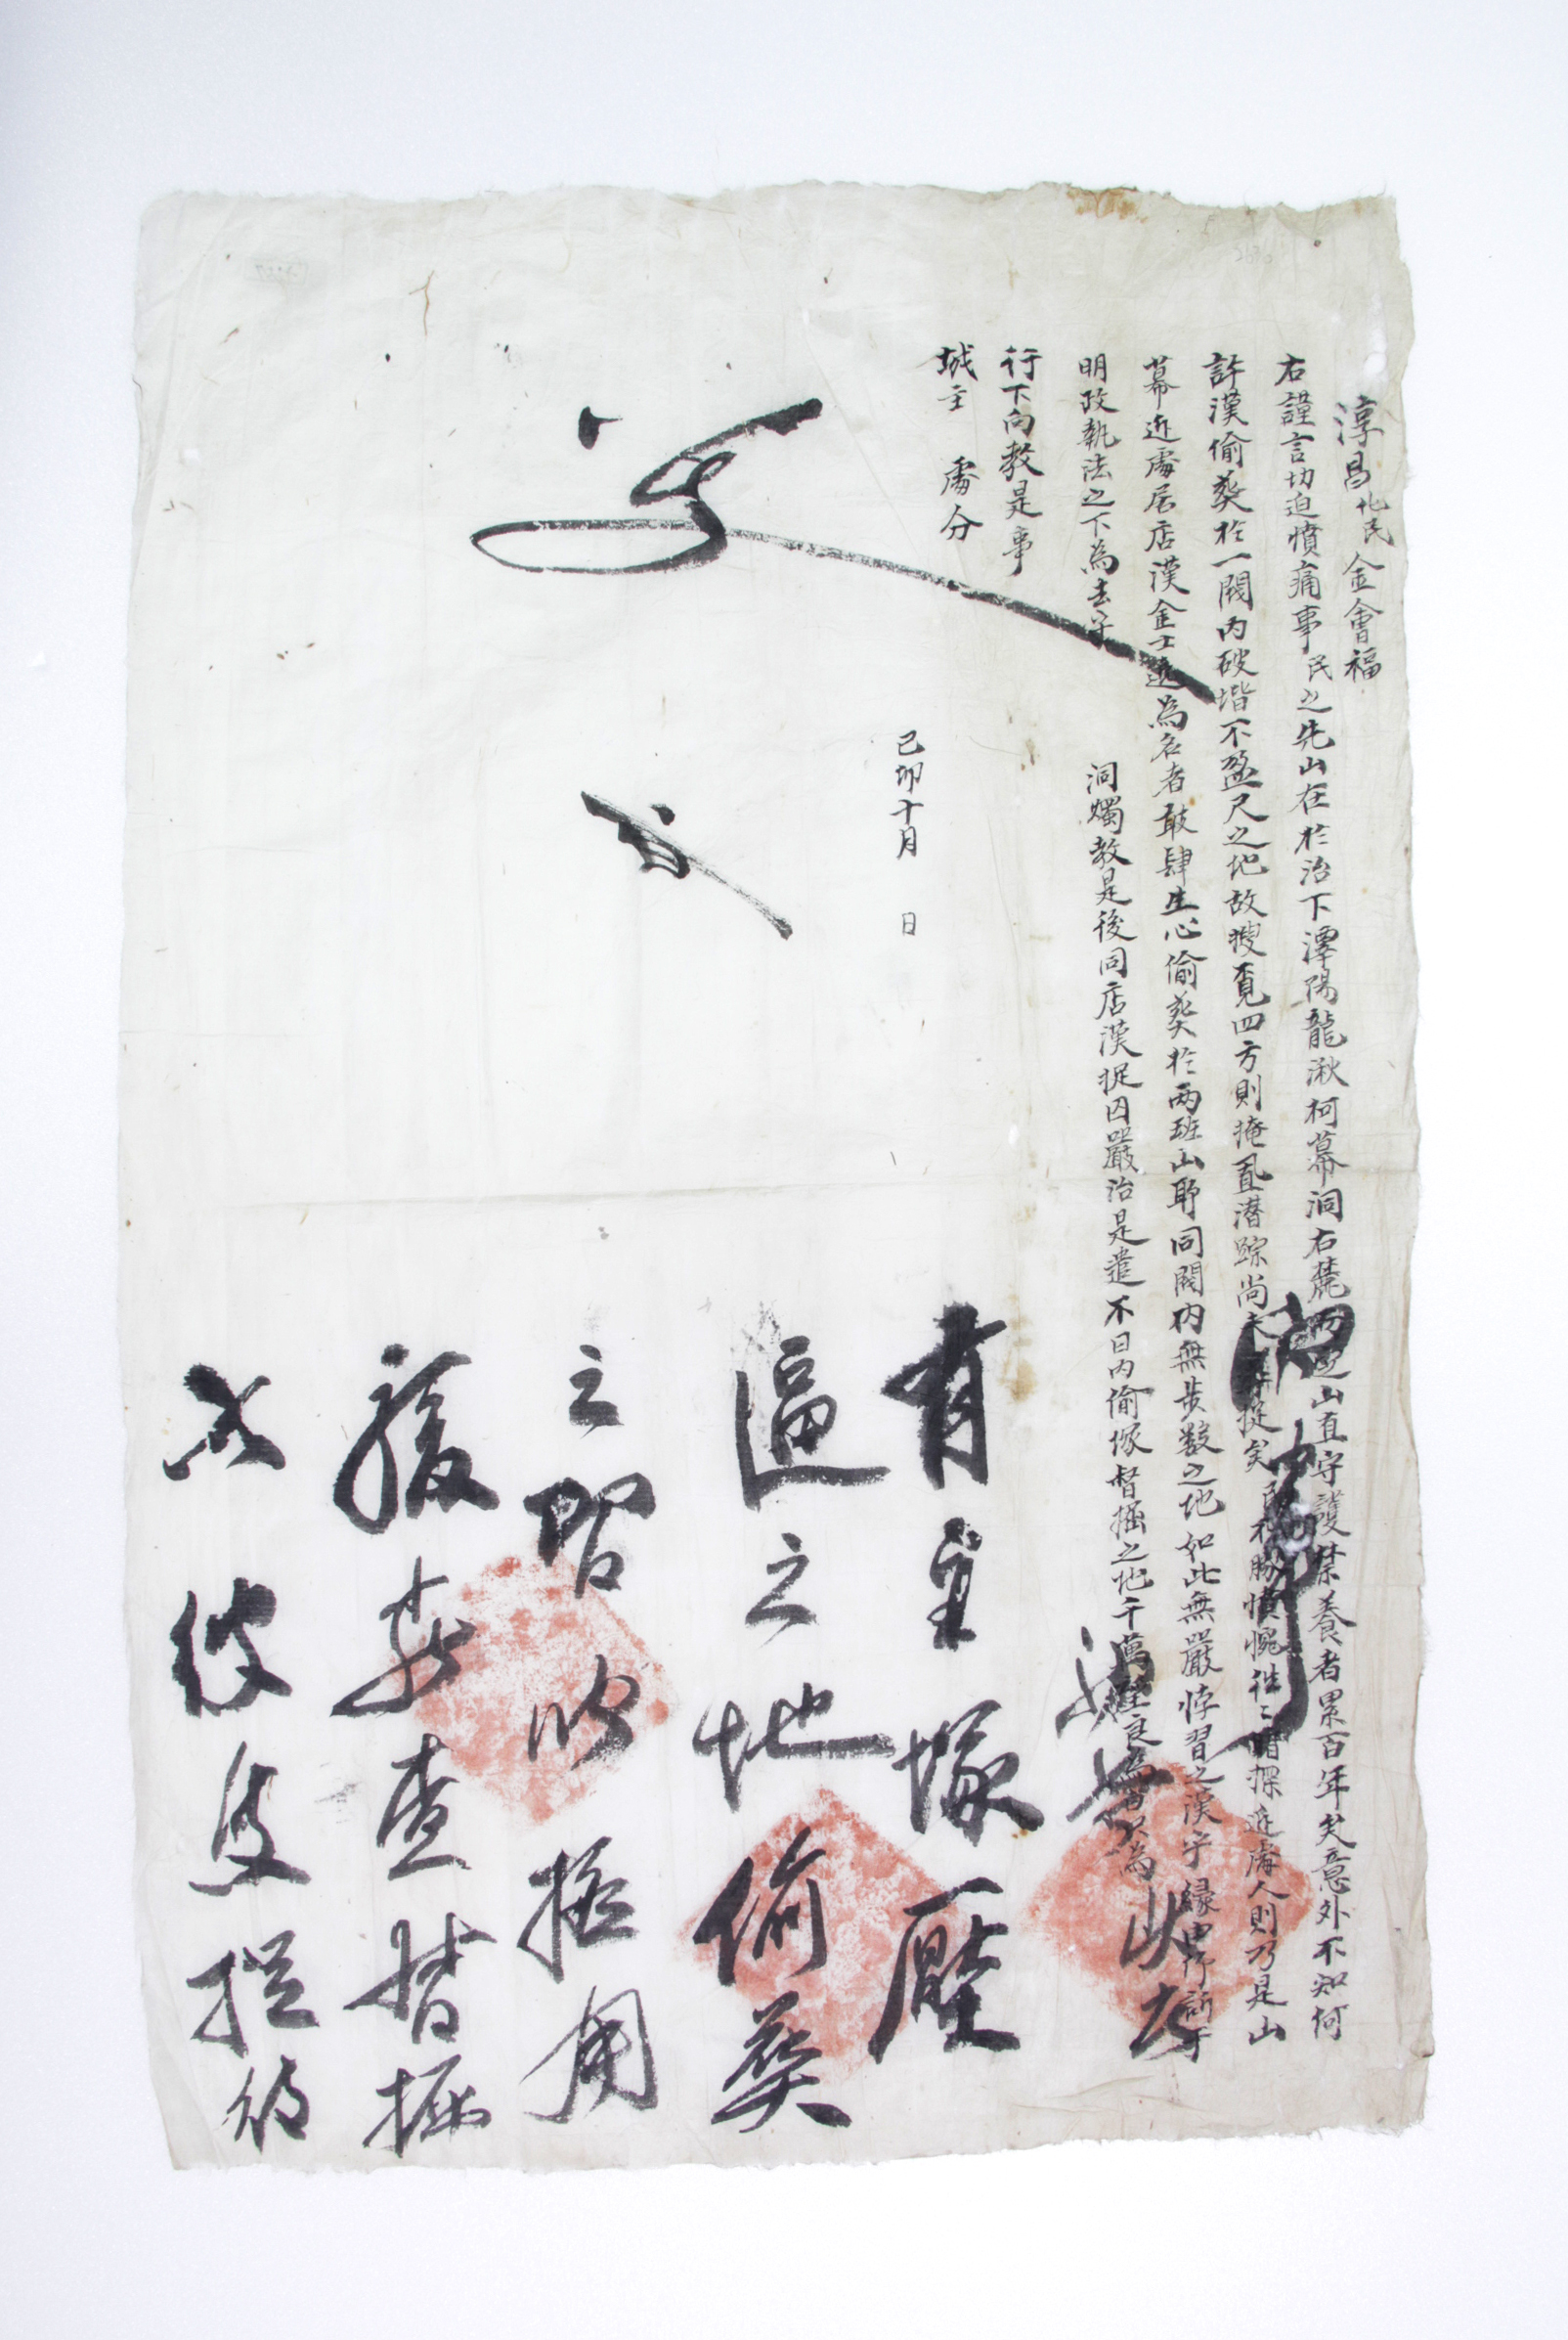 淳昌化民 金會福
右謹言切迫憤痛事民之先山在於治下潭陽龍湫柯幕洞右麓而定山直守護禁養者累百年矣意外不知何
許漢偷葬於一閥內破堦不盈尺之地故搜覓四方則掩匿潛踪尚未捉矣民不勝憤惋徃〻暗探近處人則乃是山
幕近處居店漢金士 為名者敢肆生心偷葬於兩班山耶同閥內無步數之地如此無嚴悖習之漢乎緣由仰訴于
明政執法之下為去乎 洞燭教是後同店漢捉囚嚴治是遣不日內偷塚督掘之地千萬 良為只為
行下向教是事
城主 處分
己卯十月 日
有主塚壓
逼之地偷葬
之習 極
駭 查督掘
次彼隻捉待